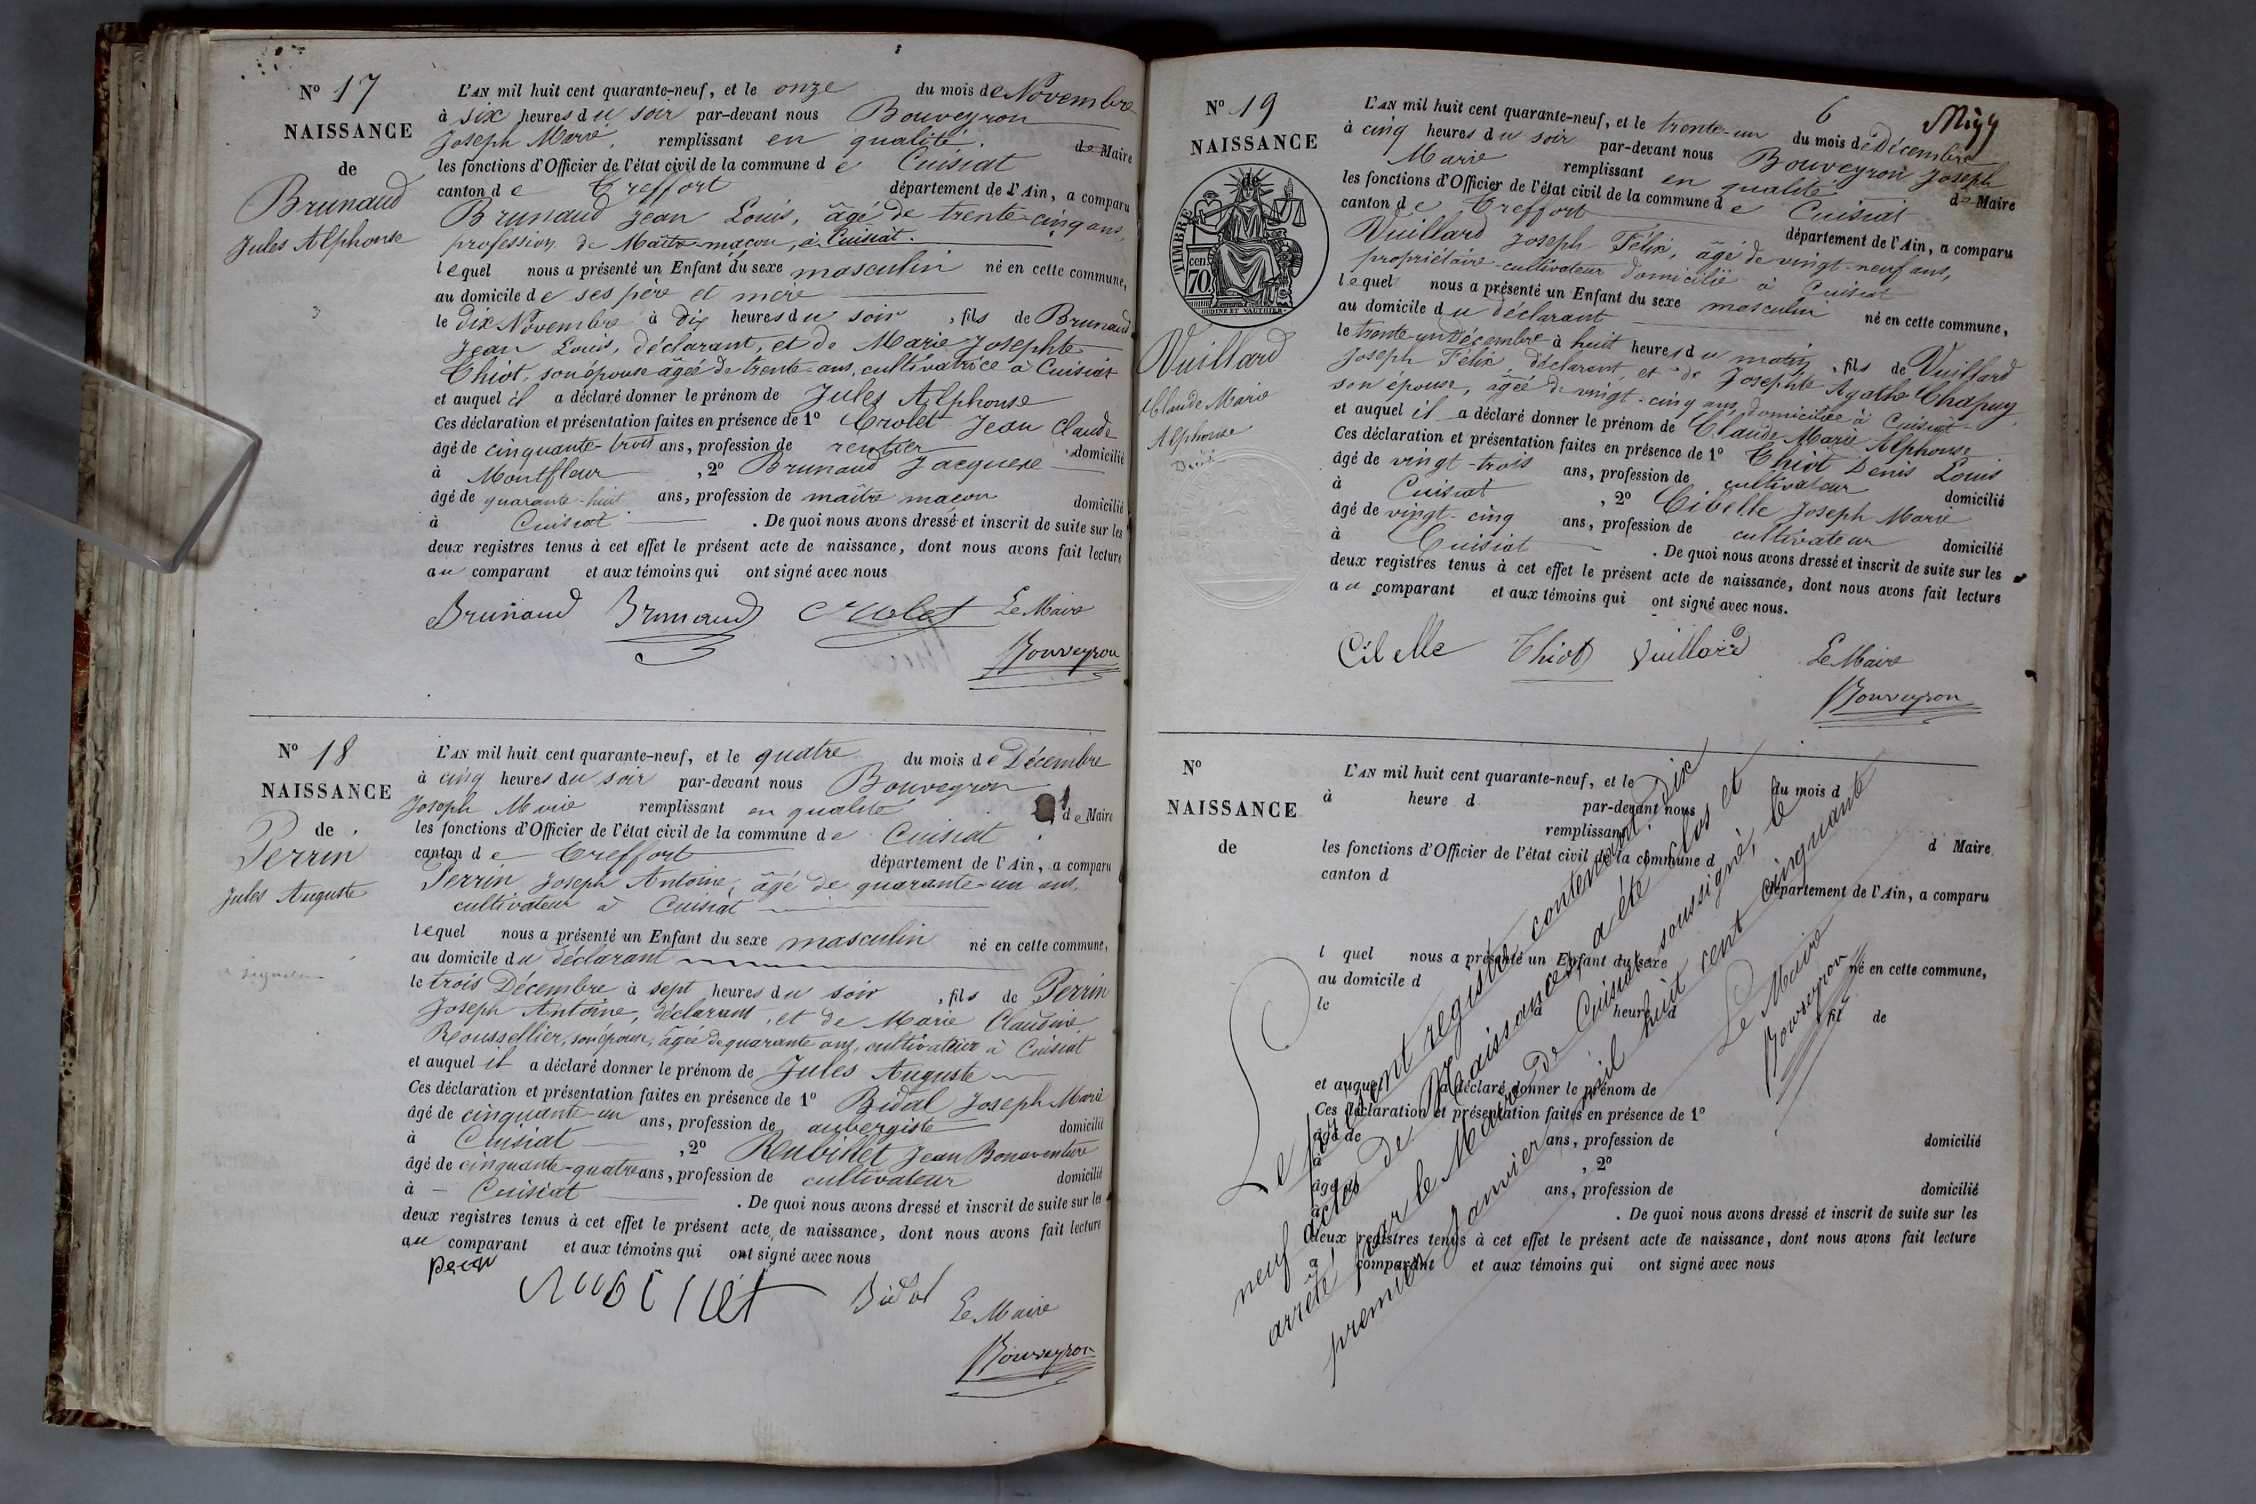 N° 17
NAISSANCE
de
Brunaud
Jules Alphonse
L'AN mil huit cent quarante-neuf, et le onze du mois de Novembre
à six heures du soir par-devant nous Bouveyron
Joseph Marie, remplissant en qualité de Maire
les fonctions d'Officier de l'état civil de la commune de Cuisiat
canton de Treffort département de l'Ain, a comparu
Brunaud Jean Louis, âgé de trente-cinq ans,
profession de Maître maçon, à Cuisiat.
lequel nous a présenté un Enfant du sexe masculin né en cette commune,
au domicile de ses père et mère
le dix Novembre à dix heures du soir, fils de Brunaud
Jean Louis, déclarant, et de Marie Josephte
Thiot, son épouse âgée de trente ans, cultivatrice à Cuisiat
et auquel il a déclaré donner le prénom de Jules Alphonse
Ces déclaration et présentation faites en présence de 1° Crolet Jean Claude
âgé de cinquante-trois ans, profession de rentier domicilié
à Montfleur, 2° Brunaud Jacques
âgé de quarante-huit ans, profession de maître maçon domicilié
à Cuisiat. De quoi nous avons dressé et inscrit de suite sur les
deux registres tenus à cet effet le présent acte de naissance, dont nous avons fait lecture
au comparant et aux témoins qui ont signé avec nous
Brunaud Brunaud Crolet Le Maire
Bouveyron
N° 18
NAISSANCE
de
Perrin
Jules Auguste
L'AN mil huit cent quarante-neuf, et le quatre du mois de Décembre
à cinq heures du soir par-devant nous Bouveyron
Joseph Marie remplissant en qualité de Maire
les fonctions d'Officier de l'état civil de la commune de Cuisiat
canton de Treffort département de l'Ain, a comparu
Perrin Joseph Antoine, âgé de quarante-un ans,
cultivateur à Cuisiat
lequel nous a présenté un Enfant du sexe masculin né en cette commune,
au domicile du déclarant
le trois Décembre à sept heures du soir, fils de Perrin
Joseph Antoine, déclarant, et de Marie Claudine
Roussellier, son épouse, âgée de quarante ans, cultivateur à Cuisiat
et auquel il a déclaré donner le prénom de Jules Auguste
Ces déclaration et présentation faites en présence de 1° Bidal Joseph Marie
âgé de cinquante-un ans, profession de aubergiste domicilié
à Cuisiat, 2° Reubillet Jean Bonaventure
âgé de cinquante-quatre ans, profession de cultivateur domicilié
à Cuisiat. De quoi nous avons dressé et inscrit de suite sur les
deux registres tenus à cet effet le présent acte de naissance, dont nous avons fait lecture
au comparant et aux témoins qui ont signé avec nous
Bidal Le Maire
Bouveyron
6
N° 19
NAISSANCE
de
TIMBRE
cen. 70
OUDINE ET VAUTHIER
Vuillard
Claude Marie
Alphonse
L'AN mil huit cent quarante-neuf, et le trente-un du mois de Décembre
à cinq heures du soir par-devant nous Bouveyron Joseph
Marie remplissant en qualité de Maire
les fonctions d'Officier de l'état civil de la commune de Cuisiat
canton de Treffort département de l'Ain, a comparu
Vuillard Joseph Félix, âgé de vingt-neuf ans,
propriétaire-cultivateur domicilié à Cuisiat
lequel nous a présenté un Enfant du sexe masculin né en cette commune,
au domicile du déclarant
le trente-un Décembre à huit heures du matin, fils de Vuillard
Joseph Félix, déclarant et de Josephte Agathe Chapuy
son épouse, âgée de vingt-cinq ans, domiciliée à Cuisiat
et auquel il a déclaré donner le prénom de Claude Marie Alphonse
Ces déclaration et présentation faites en présence de 1° Thiot Denis Louis
âgé de vingt-trois ans, profession de cultivateur domicilié
à Cuisiat, 2° Cibelle Joseph Marie
âgé de vingt-cinq ans, profession de cultivateur domicilié
à Cuisiat. De quoi nous avons dressé et inscrit de suite sur les
deux registres tenus à cet effet le présent acte de naissance, dont nous avons fait lecture
au comparant et aux témoins qui ont signé avec nous.
Cibelle Thiot Vuillard Le Maire
Bouveyron
N°
NAISSANCE
de
L'AN mil huit cent quarante-neuf, et le du mois d
à heure d par-devant nous
remplissant d Maire
les fonctions d'Officier de l'état civil de la commune d
canton d département de l'Ain, a comparu
l quel nous a présenté un Enfant du sexe né en cette commune,
au domicile d
le à heure d fil de
et auquel a déclaré donner le prénom de
Ces déclaration et présentation faites en présence de 1°
âgé de ans, profession de domicilié
à , 2°
âgé de ans, profession de domicilié
à . De quoi nous avons dressé et inscrit de suite sur les
deux registres tenus à cet effet le présent acte de naissance, dont nous avons fait lecture
a comparant et aux témoins qui ont signé avec nous
Le présent registre contenant dix
neuf actes de Naissances, a été clos et
arrêté par le Maire de Cuisiat soussigné, le
premier Janvier mil huit cent cinquante
Le Maire
Bouveyron